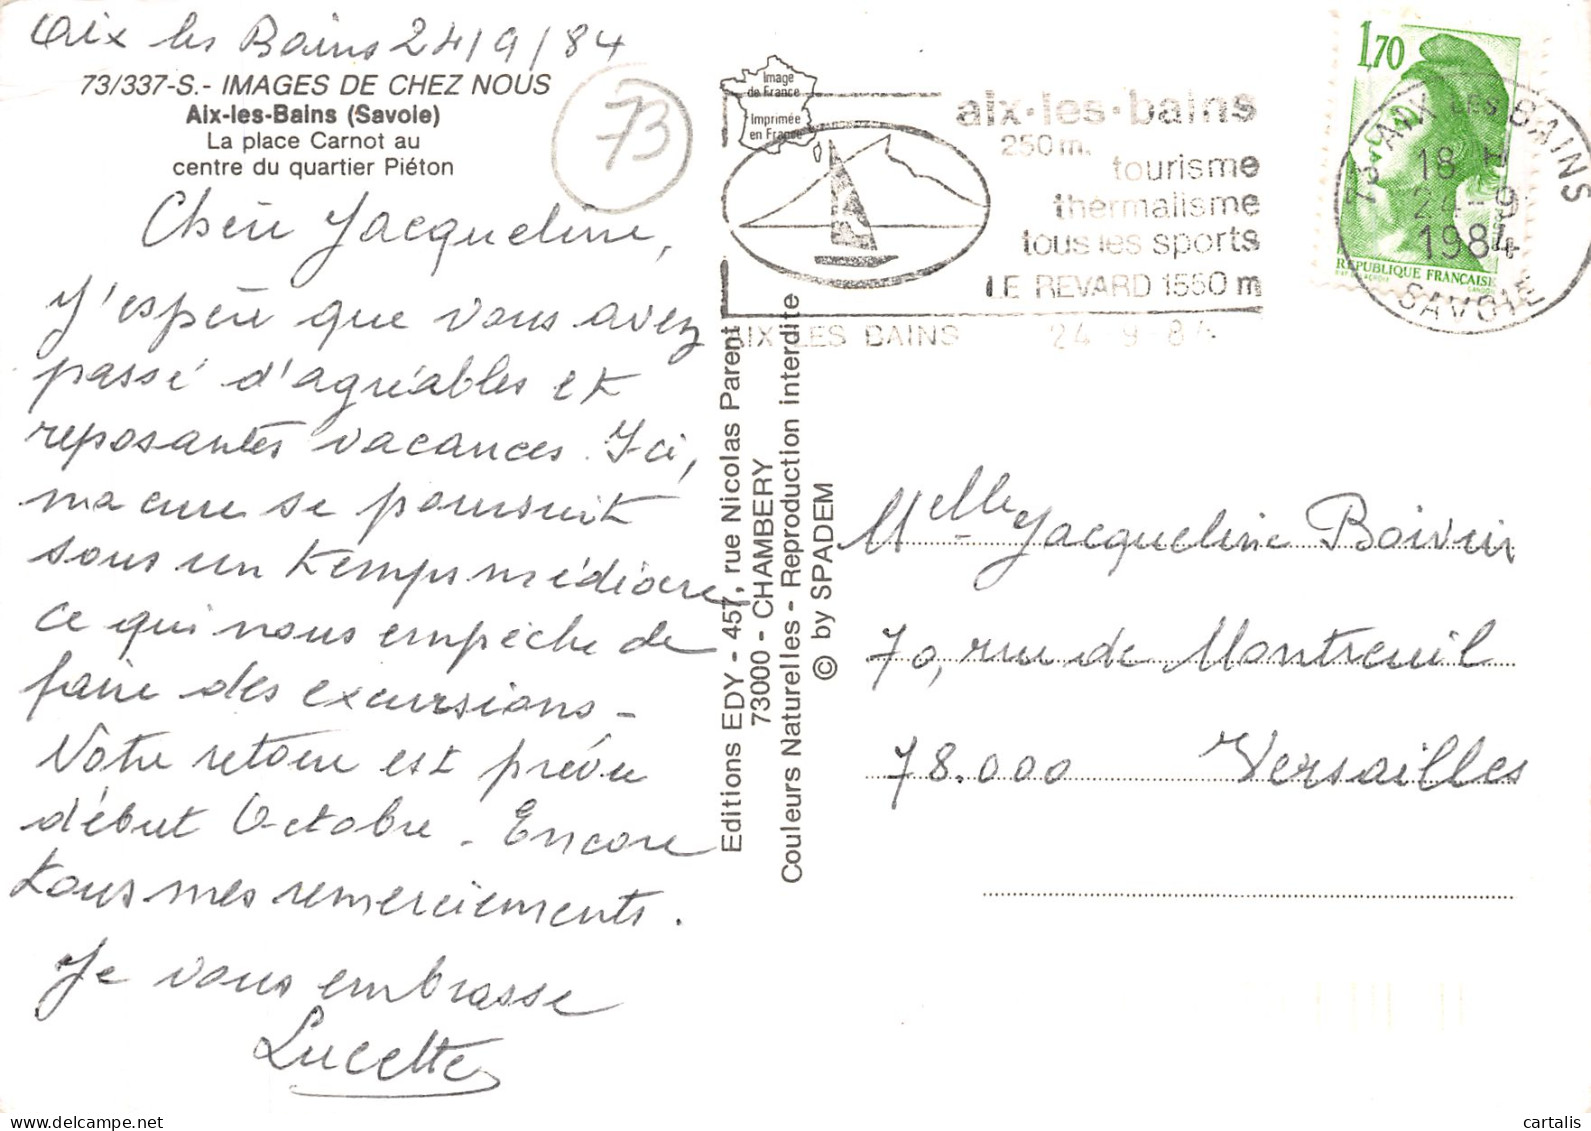 Aix les Bains 24/9/84
73/337-S.- IMAGES DE CHEZ NOUS
Aix-les-Bains (Savoie)
La place Carnot au
centre du quartier Piéton
73
Chère Jacqueline,
J'espère que vous avez
passé d'agréables et
reposantes vacances. Ici,
ma cure se poursuit
sous un temps médiocre
ce qui nous empêche de
faire des excursions -
Notre retour est prévu
début Octobre - Encore
tous mes remerciements.
Je vous embrasse
Lucette
Image
de France
Imprimée
en France
aix-les-bains
250m.
tourisme
thermalisme
tous les sports
LE REVARD 1550 m
AIX LES BAINS 24 9 84
1,70
RÉPUBLIQUE FRANÇAISE
73 AIX LES BAINS
18 H
24-9
1984
SAVOIE
Editions EDY - 457, rue Nicolas Parent
73000 - CHAMBERY
Couleurs Naturelles - Reproduction interdite
© by SPADEM
Melle Jacqueline Boivin
70, rue de Montreuil
78.000 Versailles
cartalis